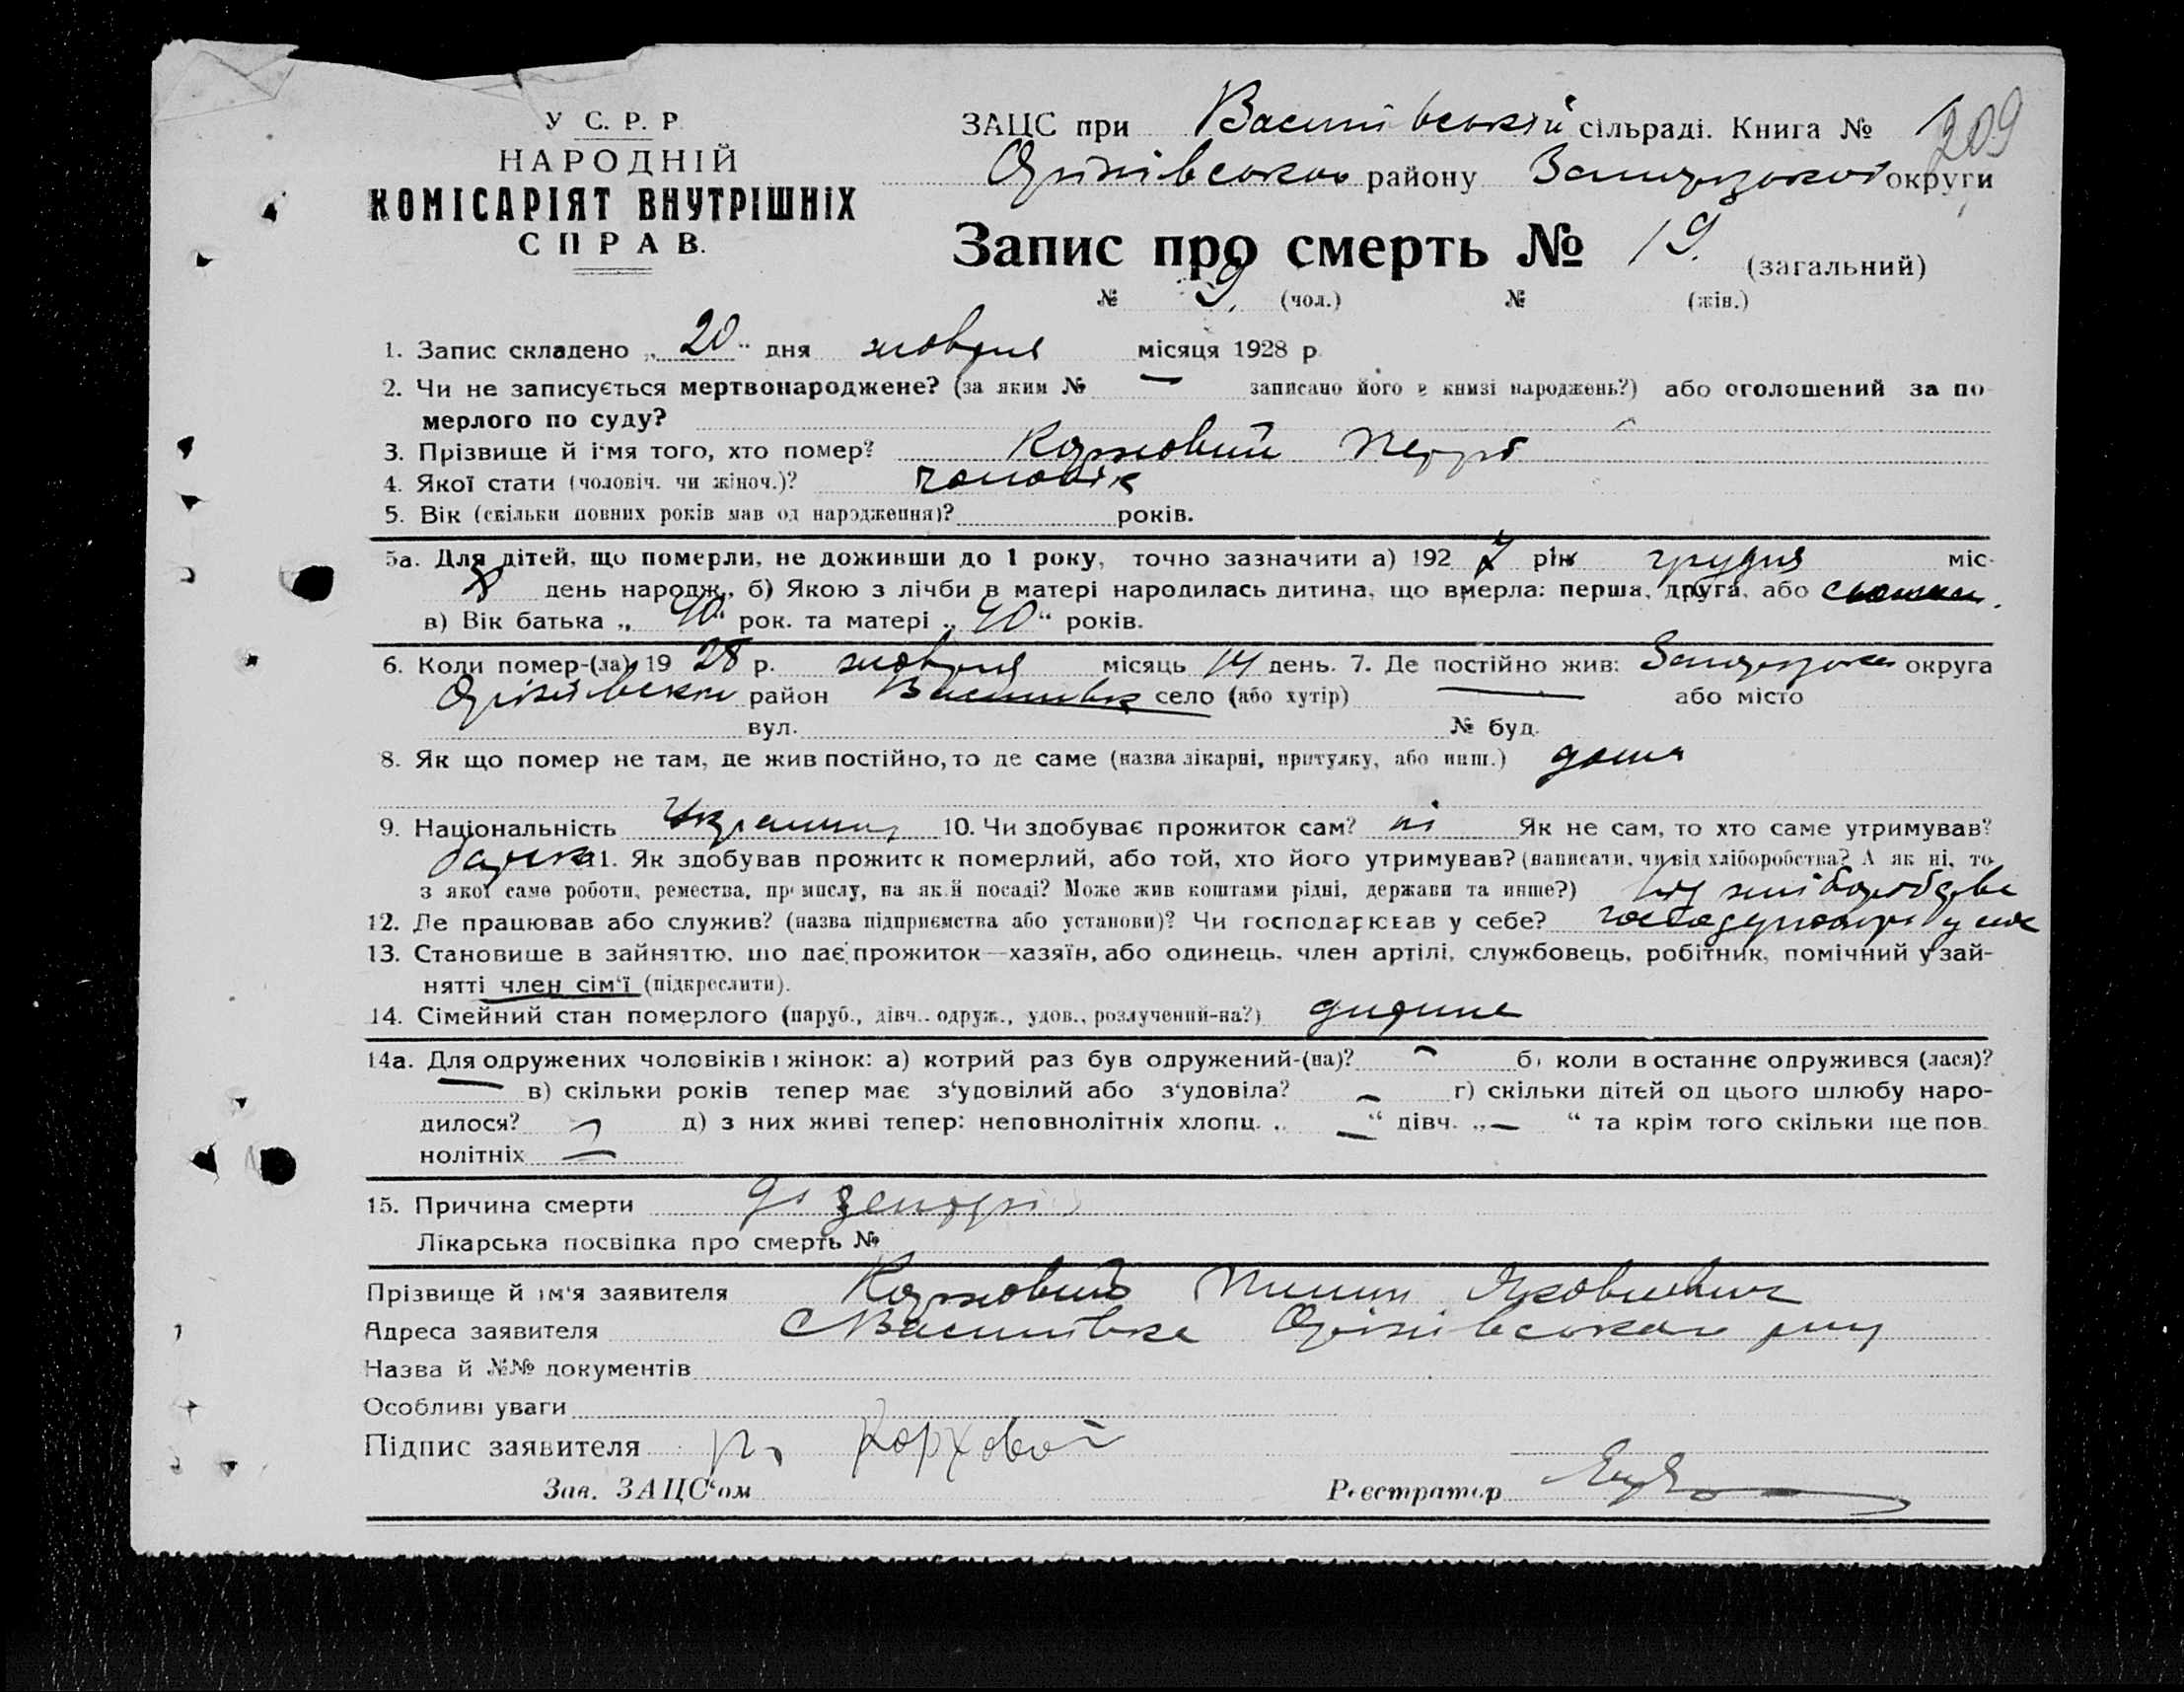 У С. Р. Р.
НАРОДНІЙ
КОМІСАРІЯТ ВНУТРІШНІХ
СПРАВ.
ЗАЦС при Василівській сільраді. Книга № 1
209
Оріхівського району Запорізької округи
Запис про смерть № 19. (загальний)
№ 9. (чол.) № (жін.)
1. Запис складено „ 20 " дня жовтня місяця 1928 р.
2. Чи не записується мертвонароджене? (за яким № — записано його в книзі народжень?) або оголошений за по-
мерлого по суду?
3. Прізвище й ім'я того, хто помер? Коржовий Петро
4. Якої стати (чоловіч. чи жіноч.)? чоловік
5. Вік (скільки повних років мав од народження)? років.
5а. Для дітей, що померли, не доживши до 1 року, точно зазначити а) 192 7 рік грудня міс.
8 день народж., б) Якою з лічби в матері народилась дитина, що вмерла: перша, друга, або
в) Вік батька „ 40 " рок. та матері „ 40 " років.
6. Коли помер-(ла) 19 28 р. жовтня місяць 14 день. 7. Де постійно жив: Запорізька округа
Оріхівський район Василівка село (або хутір) — або місто
вул. № буд.
8. Як що помер не там, де жив постійно, то де саме (назва лікарні, притулку, або инш.) дома
9. Національність Українец 10. Чи здобуває прожиток сам? ні Як не сам, то хто саме утримував?
батько 11. Як здобував прожиток померлий, або той, хто його утримував? (написати, чи від хліборобства? А як ні, то
з якої саме роботи, ремества, промислу, на якій посаді? Може жив коштами рідні, держави та инше?) від хліборобства
12. Де працював або служив? (назва підприємства або установи)? Чи господарював у себе? у себе
13. Становище в зайняттю, що дає прожиток—хазяїн, або одинець, член артілі, службовець, робітник, помічний у зай-
нятті член сім'ї (підкреслити).
14. Сімейний стан померлого (паруб., дівч., одруж., удов., розлучений-на?) дитина
14а. Для одружених чоловіків і жінок: а) котрий раз був одружений-(на)? — б) коли в останнє одружився (лася)?
— в) скільки років тепер має з'удовілий або з'удовіла? — г) скільки дітей од цього шлюбу наро-
дилося? — д) з них живі тепер: неповнолітніх хлопц. „ — " дівч. „ — " та крім того скільки ще пов-
нолітніх —
15. Причина смерти дізентрія
Лікарська посвідка про смерть №
Прізвище й ім'я заявителя Коржовий Пилип Яковлевич
Адреса заявителя с Василівка Оріхівського р-ну
Назва й №№ документів
Особливі уваги
Підпис заявителя П. Коржовой
Зав. ЗАЦС'ом Реєстратор